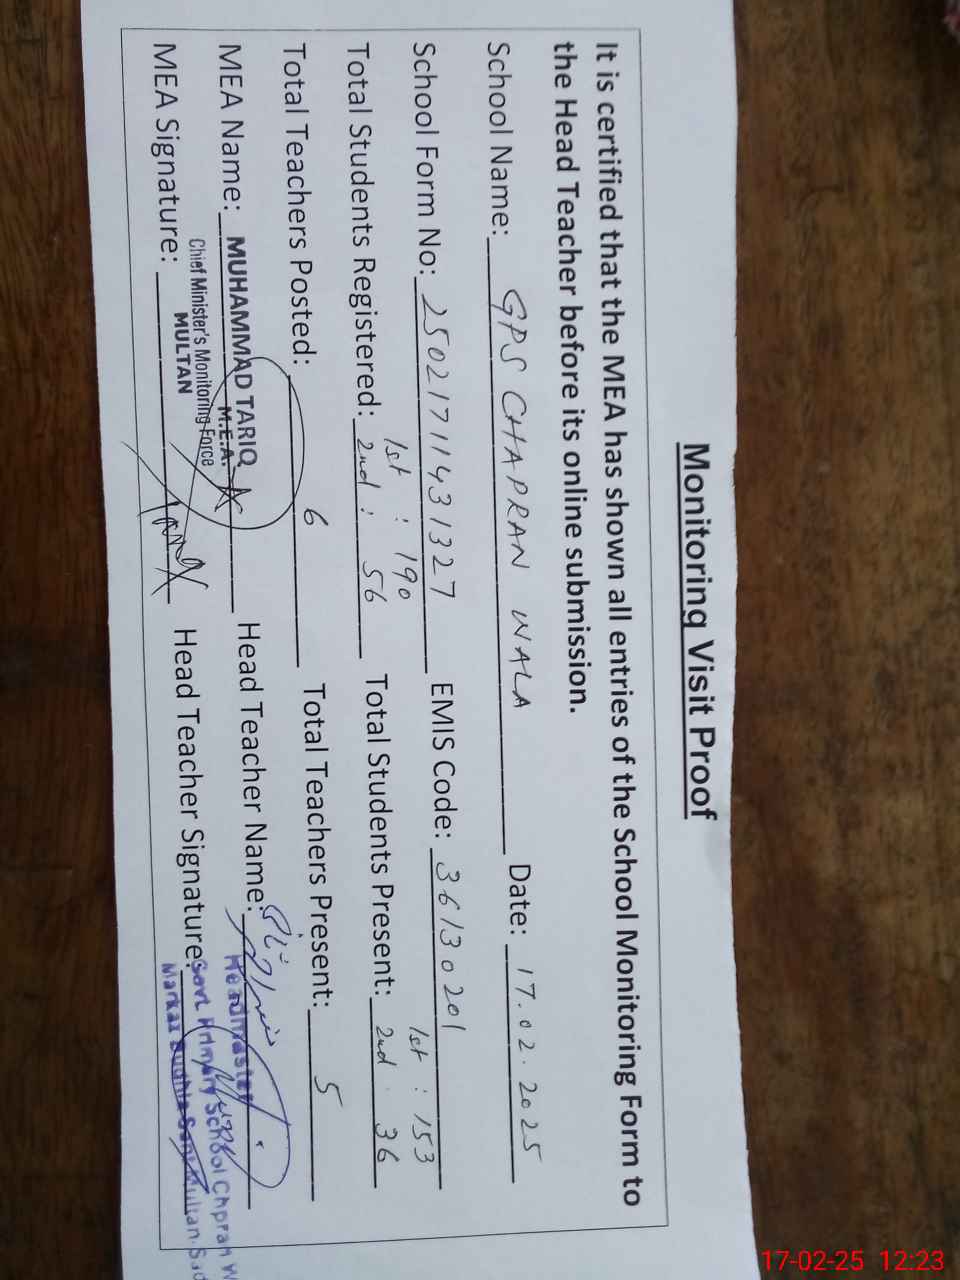 Monitoring Visit Proof
It is certified that the MEA has shown all entries of the School Monitoring Form to
the Head Teacher before its online submission.
School Name: GPS CHAPRAN WALA Date: 17.02.2025
School Form No: 25021711431327 EMIS Code: 36130201
1st : 190 1st : 153
Total Students Registered: 2nd : 56 Total Students Present: 2nd : 36
Total Teachers Posted: 6 Total Teachers Present: 5
MEA Name: MUHAMMAD TARIQ Head Teacher Name:
M.E.A. Headmaster
Chief Minister's Monitoring Force Govt Primary School Chpran W
MULTAN Markaz Multan Sad
MEA Signature: Head Teacher Signature:
17-02-25 12:23